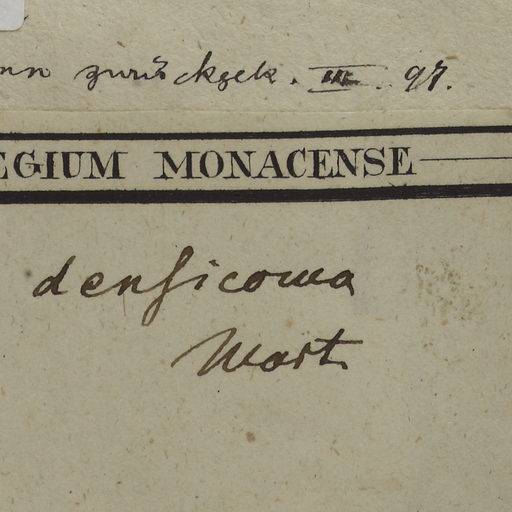 nn zurückgek. III. 97.
EGIUM MONACENSE
densicoma
Mart.